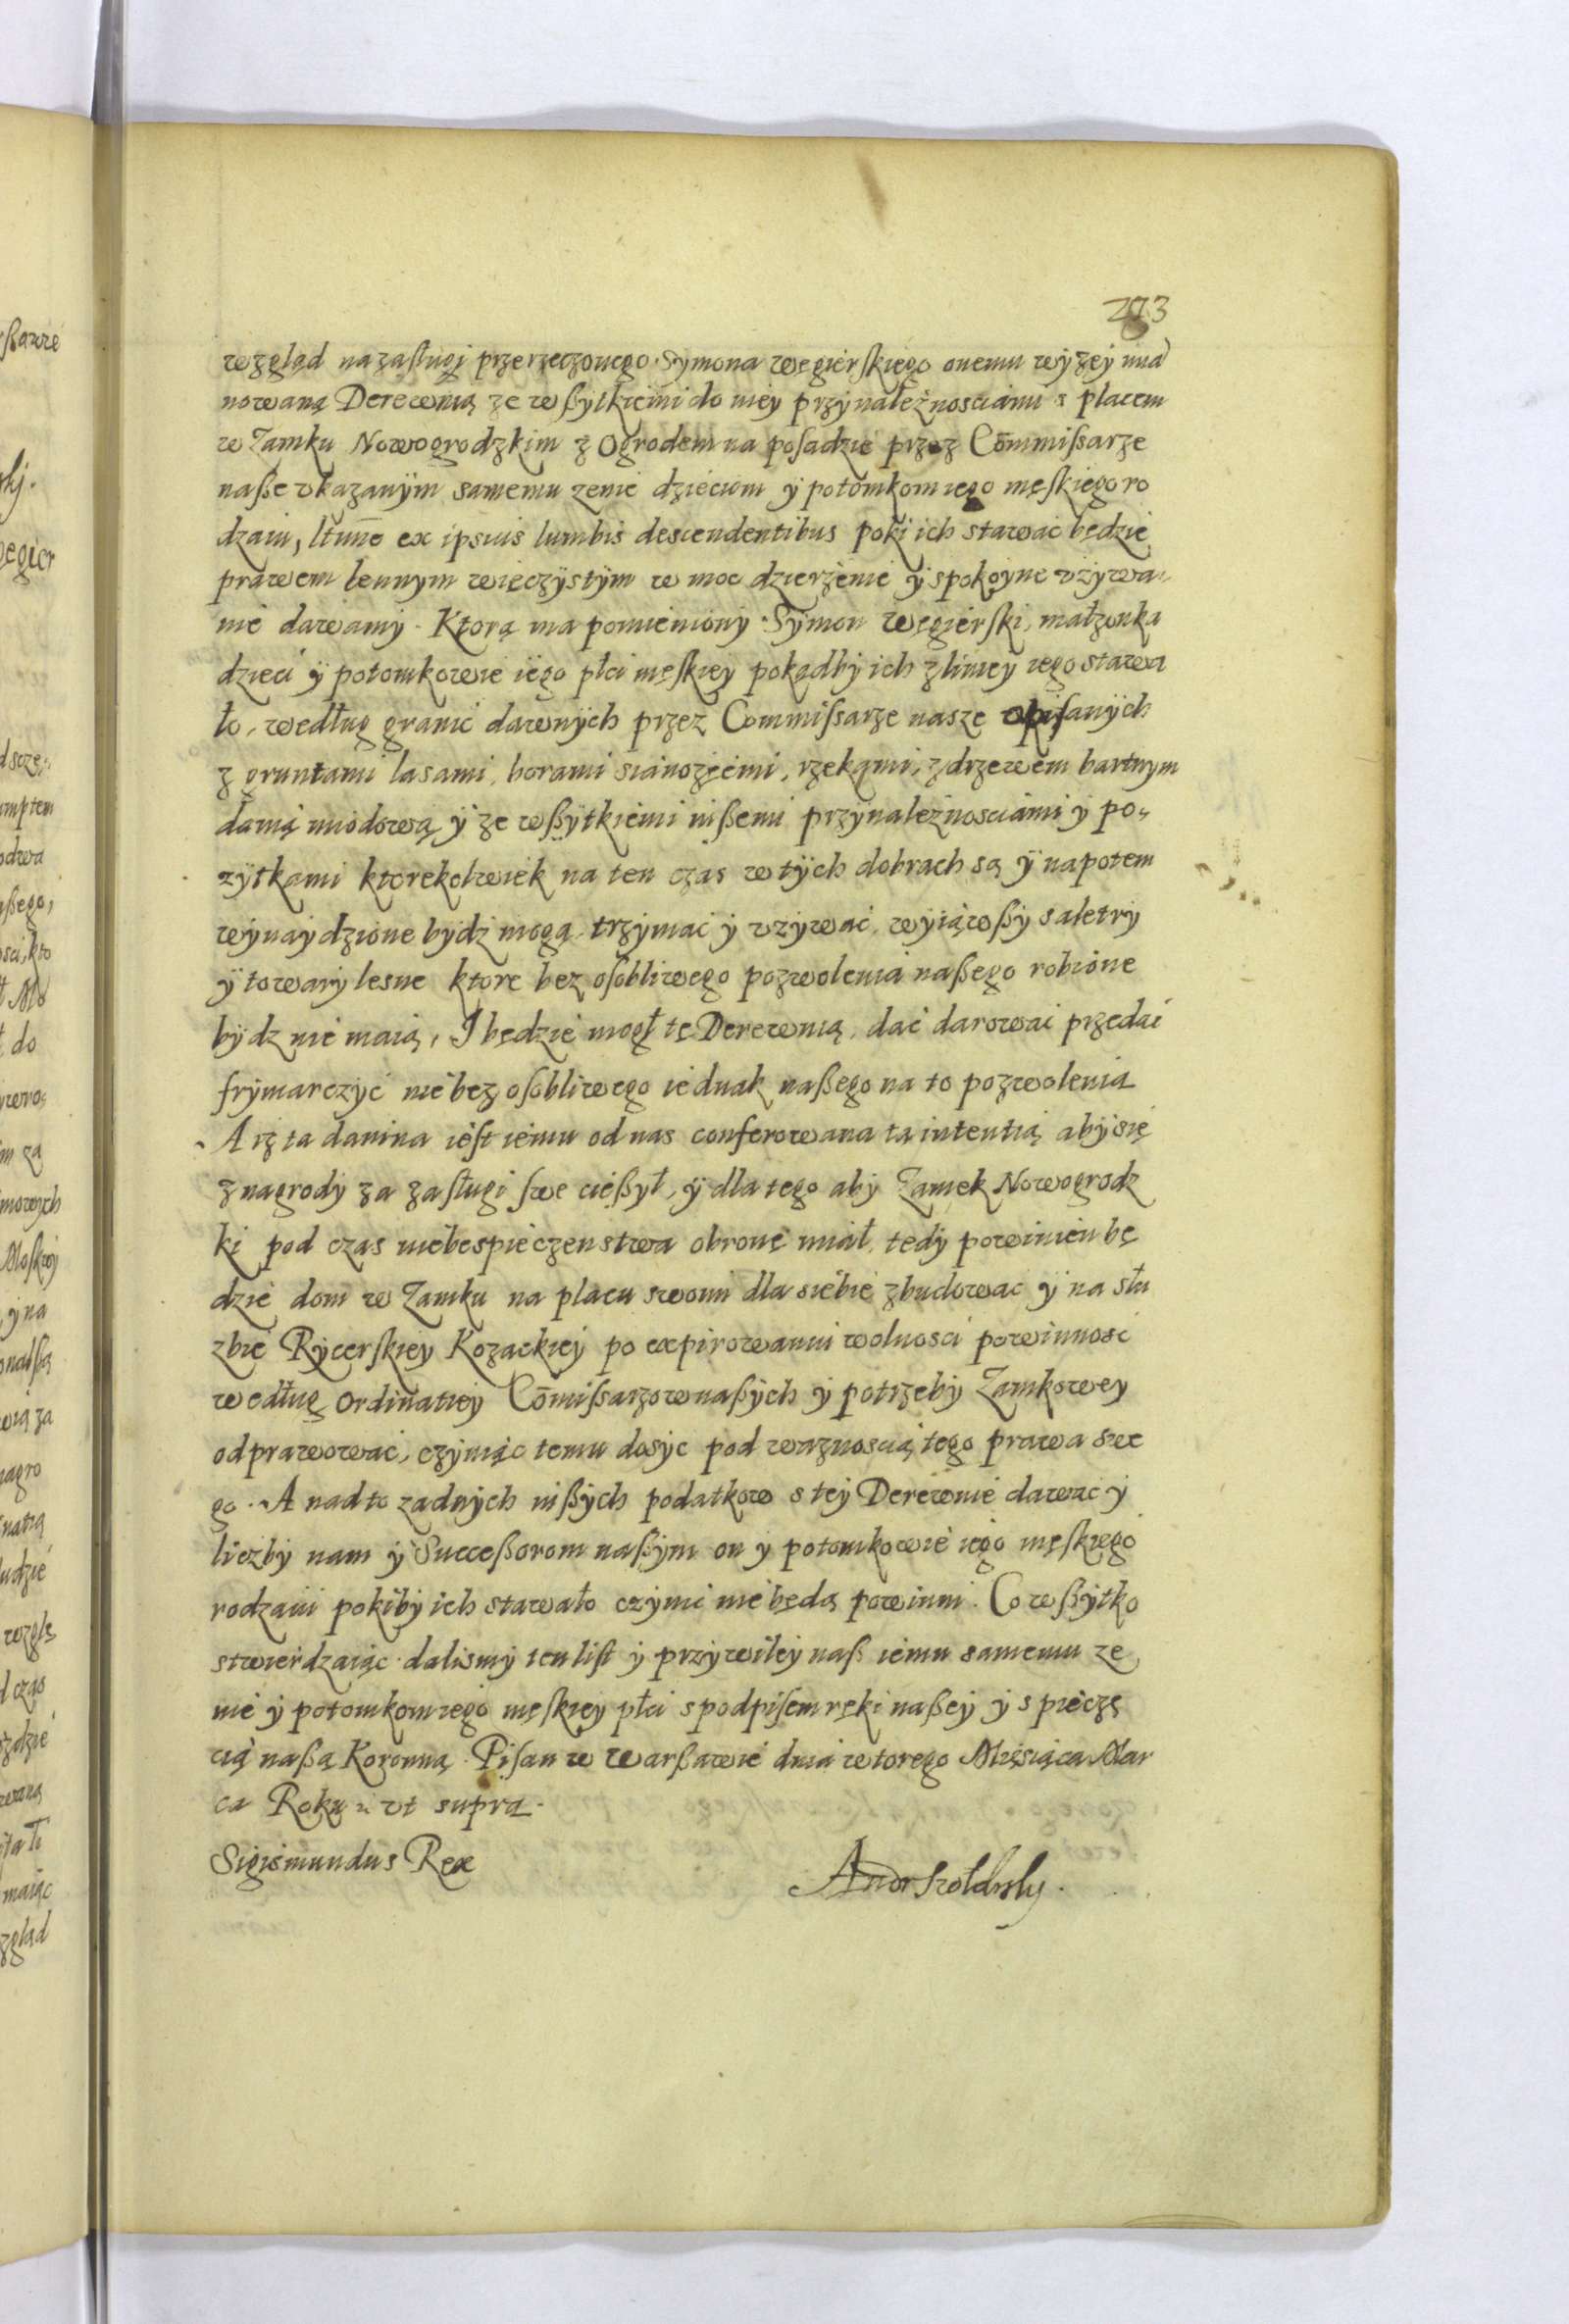 293
wzgląd na zasługi przerzeczonego Symona węgierskiego onemu wyżey mia
nowaną Derewnią ze wszytkiemi do niey przynależnosciami s placem
w Zamku Nowogrodzkim z Ogrodem na posadzie przez Cōmmissarze
nasze vkazanym samemu zenie dzieciom y potomkom iego męskiego ro
dzaiu, ex ipsius lumbis descendentibus poki ich stawać będzie
prawem lennym wieczystym w moc dzierżenie y spokoyne vżywa-
nie dawamy. Ktorą ma pomieniony Symon Węgierski, małzonka
dzieci y potomkowie iego płci męskiey pokądby ich z liniey iego stawa
ło, według granic dawnych przez Commissarze nasze opisanych
z gruntami lasami, borami sianozęćmi, rzekąmi, z drzewem bartnym
danią miodową y ze wszytkiemi inszemi przynależnosciami y po-
zytkami ktorekolwiek na ten czas w tych dobrach są y napotem
wynaydzione bydź mogą, trzymać y vzywać, wyiąwszy saletry
y towary lesne ktore bez osobliwego pozwolenia naszego robione
bydz nie maią, I będzie mogł tę Derewnią, dać darować przedać
frymarczyć nie bez osobliwego iednak naszego na to pozwolenia
A iż ta danina iest iemu od nas conferowana tą intentią aby się
z nagrody za zasługi swe cieszył, y dla tego aby Zamek Nowogrodz
ki pod czas niebespieczenstwa obronę miał, tedy powinien bę
dzie dom w Zamku na placu swoim dla siebie zbudować y na słu
zbie Rycerskiey Kozackiey po expirowaniu wolnosci powinnosc
według Ordinatiey Cōmissarzow naszych y potrzeby Zamkowey
odprawować, czyniąc temu dosyc pod waznoscią tego prawa swe
go. A nadto zadnych inszych podatkow s tey Derewnie dawać y
liczby nam y Successorom naszym on y potomkowie iego męskiego
rodzaiu pokiby ich stawało czynić nie będą powinni. Co wszytko
stwierdzaiąc dalismy ten list y przywiley nasz iemu samemu ze
nie y potomkom iego męskiey płci s podpisem ręki naszey y s pieczę
cią naszą Koronną. Pisan w Warszawie dnia wtorego Miesiąca Mar
ca Roku vt supra.
Sigismundus Rex
Andr Szołdrsky.